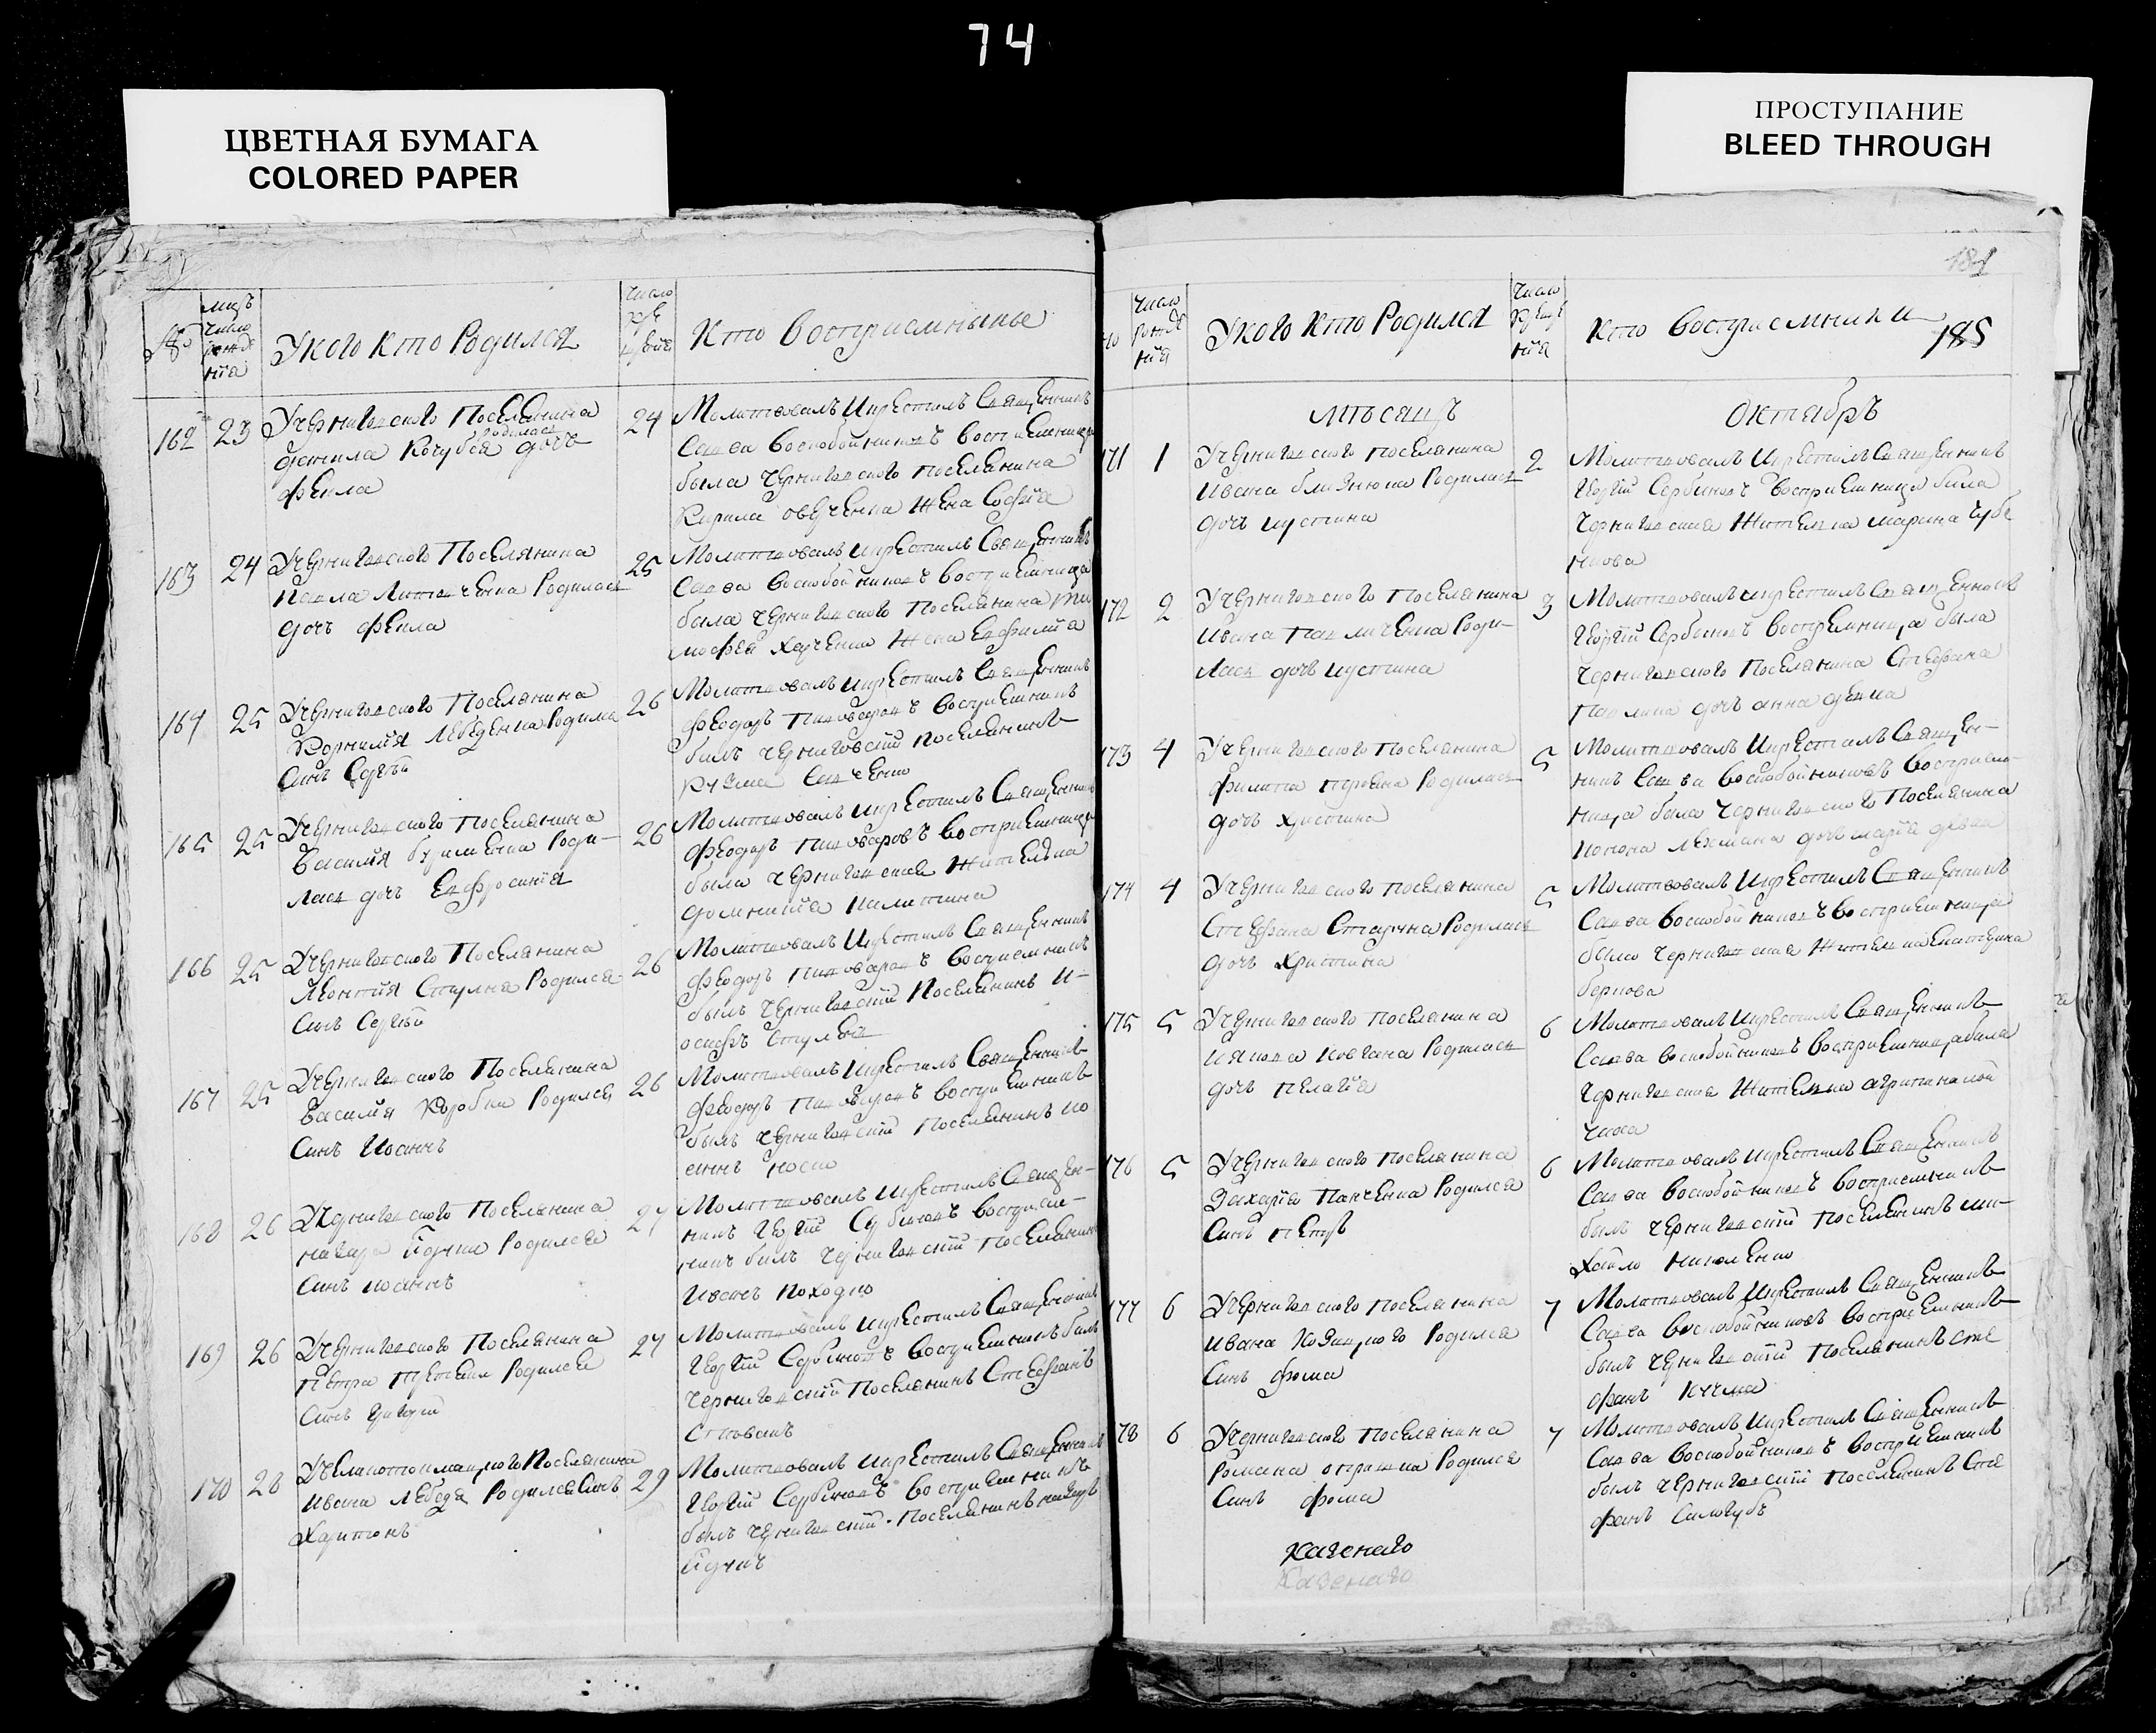 74
ЦВЕТНАЯ БУМАГА
COLORED PAPER
ПРОСТУПАНИЕ
BLEED THROUGH
№
число
У кого кто Родился
число
Кто Восприемныке
162 23 У Черниговского Поселянина
Данила Кочубея Родилась дочь
Фекла
24 Молитвовалъ И крестилъ Священникъ
Савва Воскобойниковъ Восприемница
была Черниговского Поселянина
Кирила Овчренка Жена Софія
163 24 У Черниговского Поселянина
Павла Литвченка Родилась
дочь Фекла
25 Молитвовалъ И крестилъ Священникъ
Савва Воскобойниковъ Восприемница
была Черниговского Поселянина Ти
мофея Харченка Жена Евфимія
164 25 У Черниговского Поселянина
Корнилія Лебеденка Родился
Синъ Сергѣй
26 Молитвовалъ И крестилъ Священникъ
Феодоръ Пивоваровъ Восприемникъ
былъ Черниговскій Поселянинъ
Кузма Савченко
165 25 У Черниговского Поселянина
Василія Роди-
лась дочь Евфросинія
26 Молитвовалъ И крестилъ Священникъ
Феодоръ Пивоваровъ Восприемница
была Черниговская Жителька
Домникія Никитина
166 25 У Черниговского Поселянина
Леонтія Стулня Родился
Синъ Сергѣй
26 Молитвовалъ И крестилъ Священникъ
Феодоръ Пивоваровъ Восприемникъ
былъ Черниговскій Поселянинъ И-
осифъ
167 25 У Черниговского Поселянина
Василія Коробки Родился
Синъ Иоаннъ
26 Молитвовалъ И крестилъ Священникъ
Феодоръ Пивоваровъ Восприемникъ
былъ Черниговскій Поселянинъ
168 26 У Черниговского Поселянина
Назара Родился
Синъ Иоаннъ
27 Молитвовалъ И крестилъ Священ-
никъ Георгій Сербиновъ Восприем-
никъ былъ Черниговскій Поселянинъ
Иванъ Походно
169 26 У Черниговского Поселянина
Петра Родился
Синъ Григорій
27 Молитвовалъ И крестилъ Священникъ
Георгій Сербиновъ Восприемникъ былъ
Черниговскій Поселянинъ Стефанъ
170 28 Поселянина
Ивана Лебедя Родился Синъ
Харитонъ
29 Молитвовалъ И крестилъ Священникъ
Георгій Сербиновъ Восприемникъ
былъ Черниговскій Поселянинъ Назаръ
число
У кого кто Родился
число
Кто Восприемники
185
Мѣсяцъ
Октябръ
171 1 У Черниговского Поселянина
Ивана Близнюка Родилась
дочь Иустина
2 Молитвовалъ И крестилъ Священникъ
Георгій Сербиновъ Восприемница была
Черниговская Жителька Марина Чубе
нкова
172 2 У Черниговского Поселянина
Ивана Павличенка Роди-
лась дочь Иустина
3 Молитвовалъ И крестилъ Священникъ
Георгій Сербиновъ Восприемница была
Черниговского Поселянина Стефана
Павлика дочь Анна девка
173 4 У Черниговского Поселянина
Филипа Родилась
дочь Христина
5 Молитвовалъ И крестилъ Священ-
никъ Савва Воскобойниковъ Восприем-
ница была Черниговского Поселянина
дочь Марія девка
174 4 У Черниговского Поселянина
Стефана Родилась
дочь Христина
5 Молитвовалъ И крестилъ Священникъ
Савва Воскобойниковъ Восприемница
была Черниговская Жителька Екатерина
175 5 У Черниговского Поселянина
Иякова Ковгана Родилась
дочь Пелагія
6 Молитвовалъ И крестилъ Священникъ
Савва Воскобойниковъ Восприемница была
Черниговская Жителька Агрипина
176 5 У Черниговского Поселянина
Захарія Панченка Родился
Синъ Петръ
6 Молитвовалъ И крестилъ Священникъ
Савва Воскобойниковъ Восприемникъ
былъ Черниговскій Поселянинъ Ми-
хайло Николенко
177 6 У Черниговского Поселянина
Ивана Козицкого Родился
Синъ Фома
7 Молитвовалъ И крестилъ Священникъ
Савва Воскобойниковъ Восприемникъ
былъ Черниговскій Поселянинъ Сте
фанъ Кучма
178 6 У Черниговского Поселянина
Романа Родился
Синъ Фома
7 Молитвовалъ И крестилъ Священникъ
Савва Воскобойниковъ Восприемникъ
былъ Черниговскій Поселянинъ Сте
фанъ Салогубъ
Казенаго
Казенаго